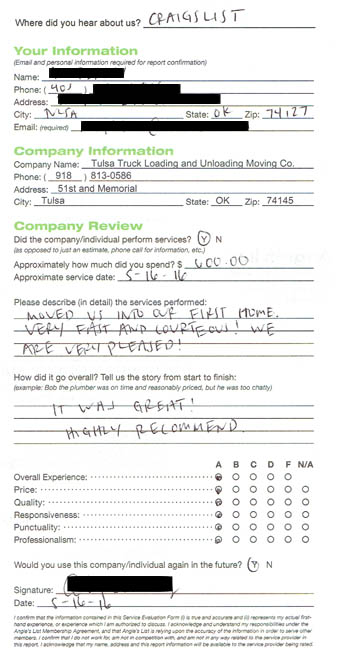 Where did you hear about us? CRAIGSLIST
Your Information
(Email and personal information required for report confirmation)
Name:
Phone: (405)
Address:
City: TULSA State: OK Zip: 74127
Email: (required)
Company Information
Company Name: Tulsa Truck Loading and Unloading Moving Co.
Phone: ( 918 ) 813-0586
Address: 51st and Memorial
City: Tulsa State: OK Zip: 74145
Company Review
Did the company/individual perform services? Y N
(as opposed to just an estimate, phone call for information, etc.)
Approximately how much did you spend? $ 600.00
Approximate service date: 5-16-16
Please describe (in detail) the services performed:
MOVED US INTO OUR FIRST HOME.
VERY FAST AND COURTEOUS! WE
ARE VERY PLEASED!
How did it go overall? Tell us the story from start to finish:
(example: Bob the plumber was on time and reasonably priced, but he was too chatty)
IT WAS GREAT!
HIGHLY RECOMMEND.
A B C D F N/A
Overall Experience:
Price:
Quality:
Responsiveness:
Punctuality:
Professionalism:
Would you use this company/individual again in the future? Y N
Signature:
Date: 5-16-16
I confirm that the information contained in this Service Evaluation Form (i) is true and accurate and (ii) represents my actual first-
hand experience, or experience which I am authorized to discuss. I acknowledge and understand my responsibilities under the
Angie's List Membership Agreement, and that Angie's List is relying upon the accuracy of the information in order to serve other
members. I confirm that I do not work for, am not in competition with, and am not in any way related to the service provider in
this report. I acknowledge that my name, address and this report information will be available to the service provider being rated.